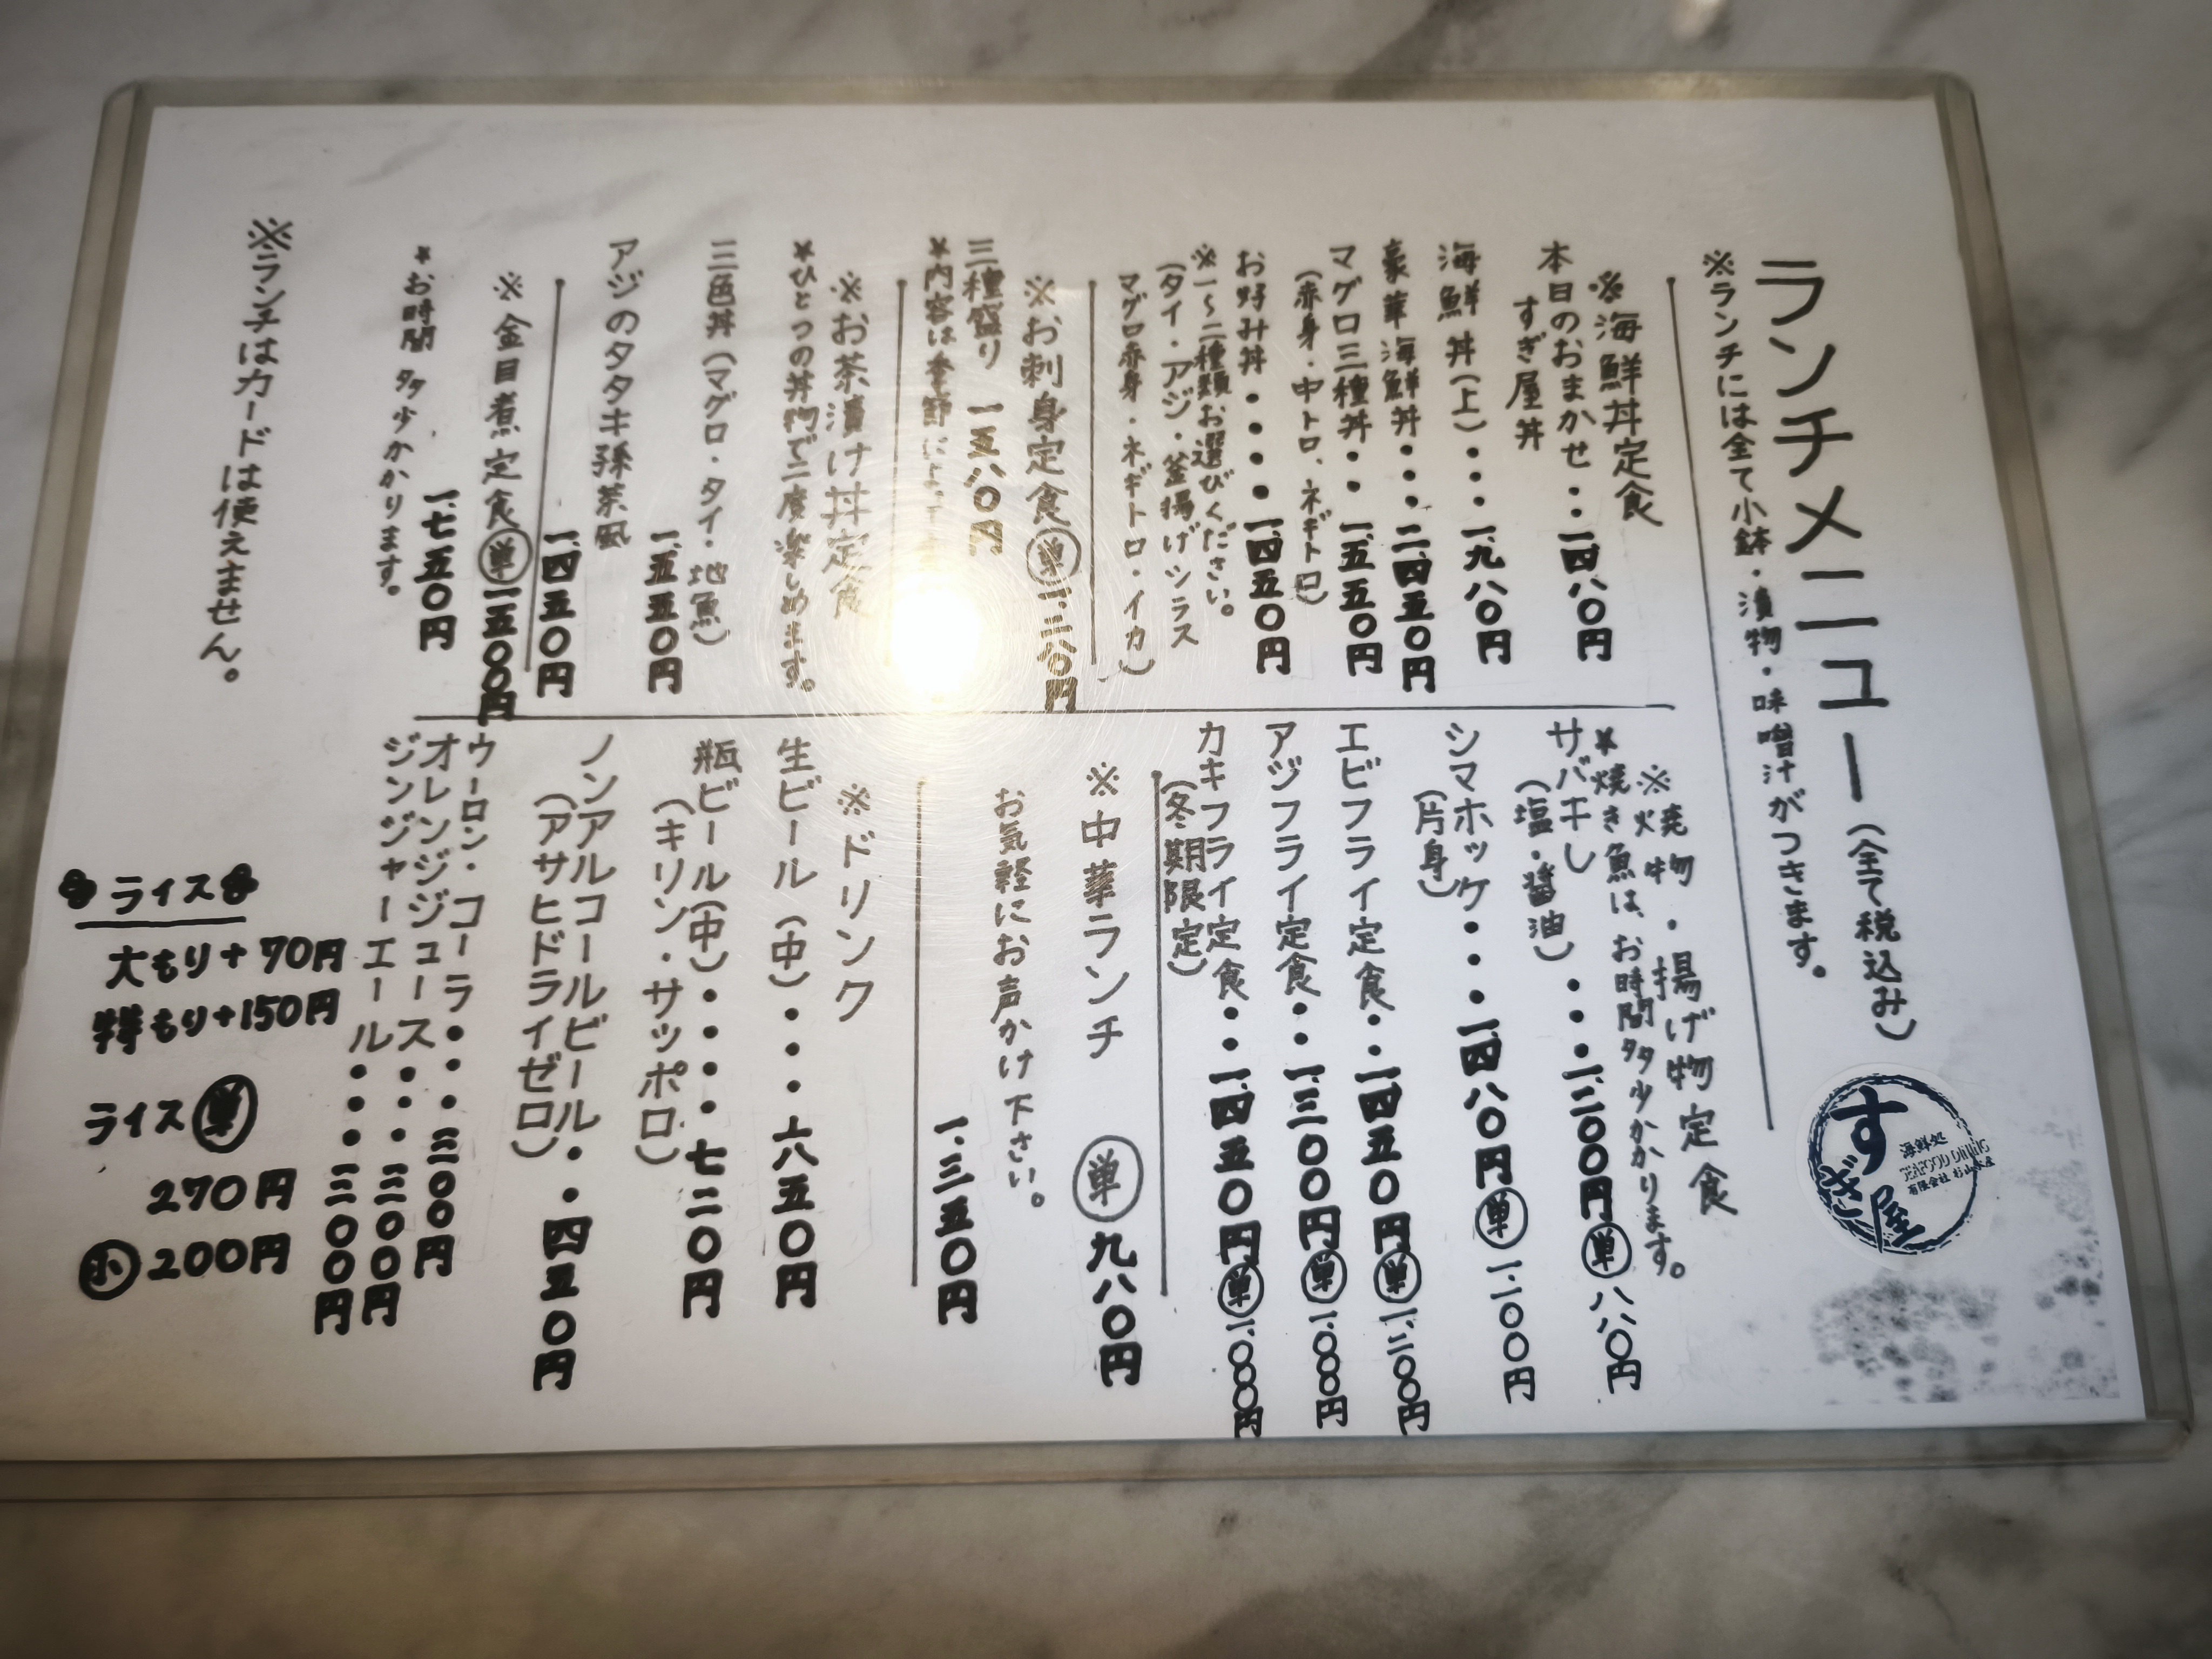 ランチメニュー(全て税込み)
※ランチには全て小鉢・漬物・味噌汁がつきます。
すぎ屋
海鮮処
SEAFOOD DINING
※海鮮丼定食
本日のおまかせ・・・一、四八〇円
すぎ屋丼
海鮮丼(上)・・・一、九八〇円
豪華海鮮丼・・・二、四五〇円
マグロ三種丼・・一、五五〇円
(赤身・中トロ、ネギトロ)
お好み丼・・・・一、四五〇円
※一〜二種類お選びください。
(タイ・アジ・釜揚げシラス
マグロ赤身・ネギトロ・イカ)
※お刺身定食 単 一、三八〇円
三種盛り 一、五八〇円
*内容は季節によって
※お茶漬け丼定食
*ひとつの丼物で二度楽しめます。
三色丼(マグロ・タイ・地魚)
一、五五〇円
アジのタタキ孫茶風
一、四五〇円
※金目煮定食 単 一、五〇〇円
一、七五〇円
*お時間多少かかります。
※ランチはカードは使えません。
※焼物・揚げ物定食
*焼き魚は、お時間多少かかります。
サバ干し
(塩・醤油)・・・一、二〇〇円 単 八八〇円
シマホッケ・・・一、四八〇円 単 一、一〇〇円
(片身)
エビフライ定食・・一、四五〇円 単 一、二〇〇円
アジフライ定食・・一、三〇〇円 単 一、〇〇〇円
カキフライ定食・・一、四五〇円 単 一、〇〇〇円
(冬期限定)
※中華ランチ 単 九八〇円
お気軽にお声かけ下さい。
一、三五〇円
※ドリンク
生ビール(中)・・・六五〇円
瓶ビール(中)・・・・七二〇円
(キリン・サッポロ)
ノンアルコールビール・・四五〇円
(アサヒドライゼロ)
ウーロン・コーラ・・・三〇〇円
オレンジジュース・・・三〇〇円
ジンジャーエール・・・三〇〇円
ライス
大もり+70円
特もり+150円
ライス 単
270円
小 200円